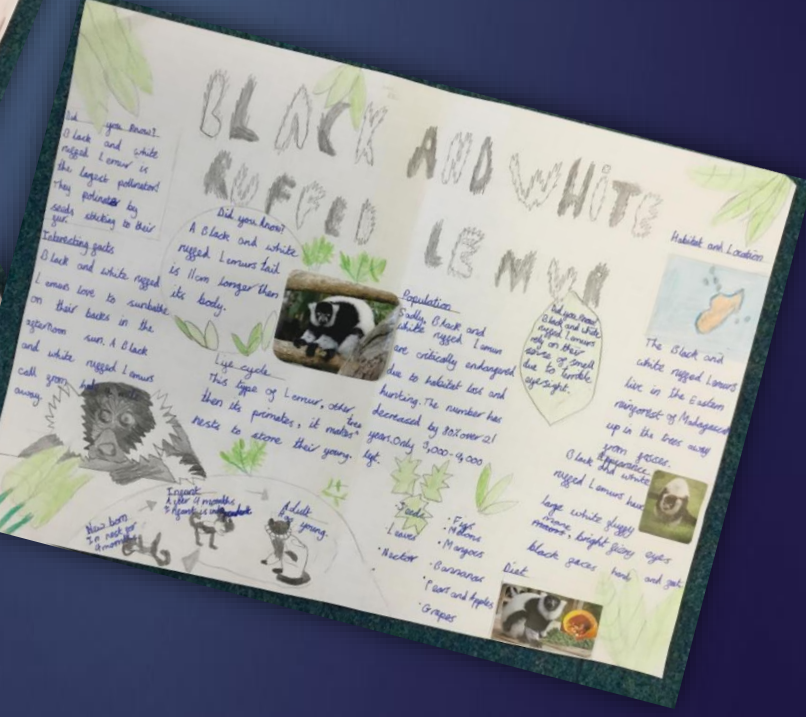 BLACK AND WHITE
RUFFED LEMUR
Did you know?
Black and white
ruffed Lemur is
the largest pollinator!
They pollinate by
seeds sticking to their
fur.
Interesting facts
Black and white ruffed
Lemurs love to sunbathe
on their backs in the
afternoon sun. A Black
and white ruffed Lemurs
call from
away.
Did you know?
A Black and white
ruffed Lemurs tail
is 11cm longer then
its body.
Life cycle
This type of Lemur, other
then its primates, it makes tree
nests to store their young.
New born
In nest for
Infant
After 4 months
Infant is
Adult
young.
Population
Sadly Black and
white ruffed Lemur
are critically endangered
due to habitat loss and
hunting. The number has
decreased by 80% over 21
years. Only
left.
Did you know?
Black and white
ruffed Lemurs
rely on their
sense of smell
due to terrible
eyesight.
Foods
Leaves
• Nectar
• Figs
• Mangoes
• Bannanas
• Pears and Apples
• Grapes
Diet
Habitat and Location
The Black and
white ruffed Lemurs
live in the Eastern
rainforest of Madagascar
up in the trees away
from fossas.
Appearance
Black and white
ruffed Lemurs have
large white fluffy
bright eyes
black faces and feet